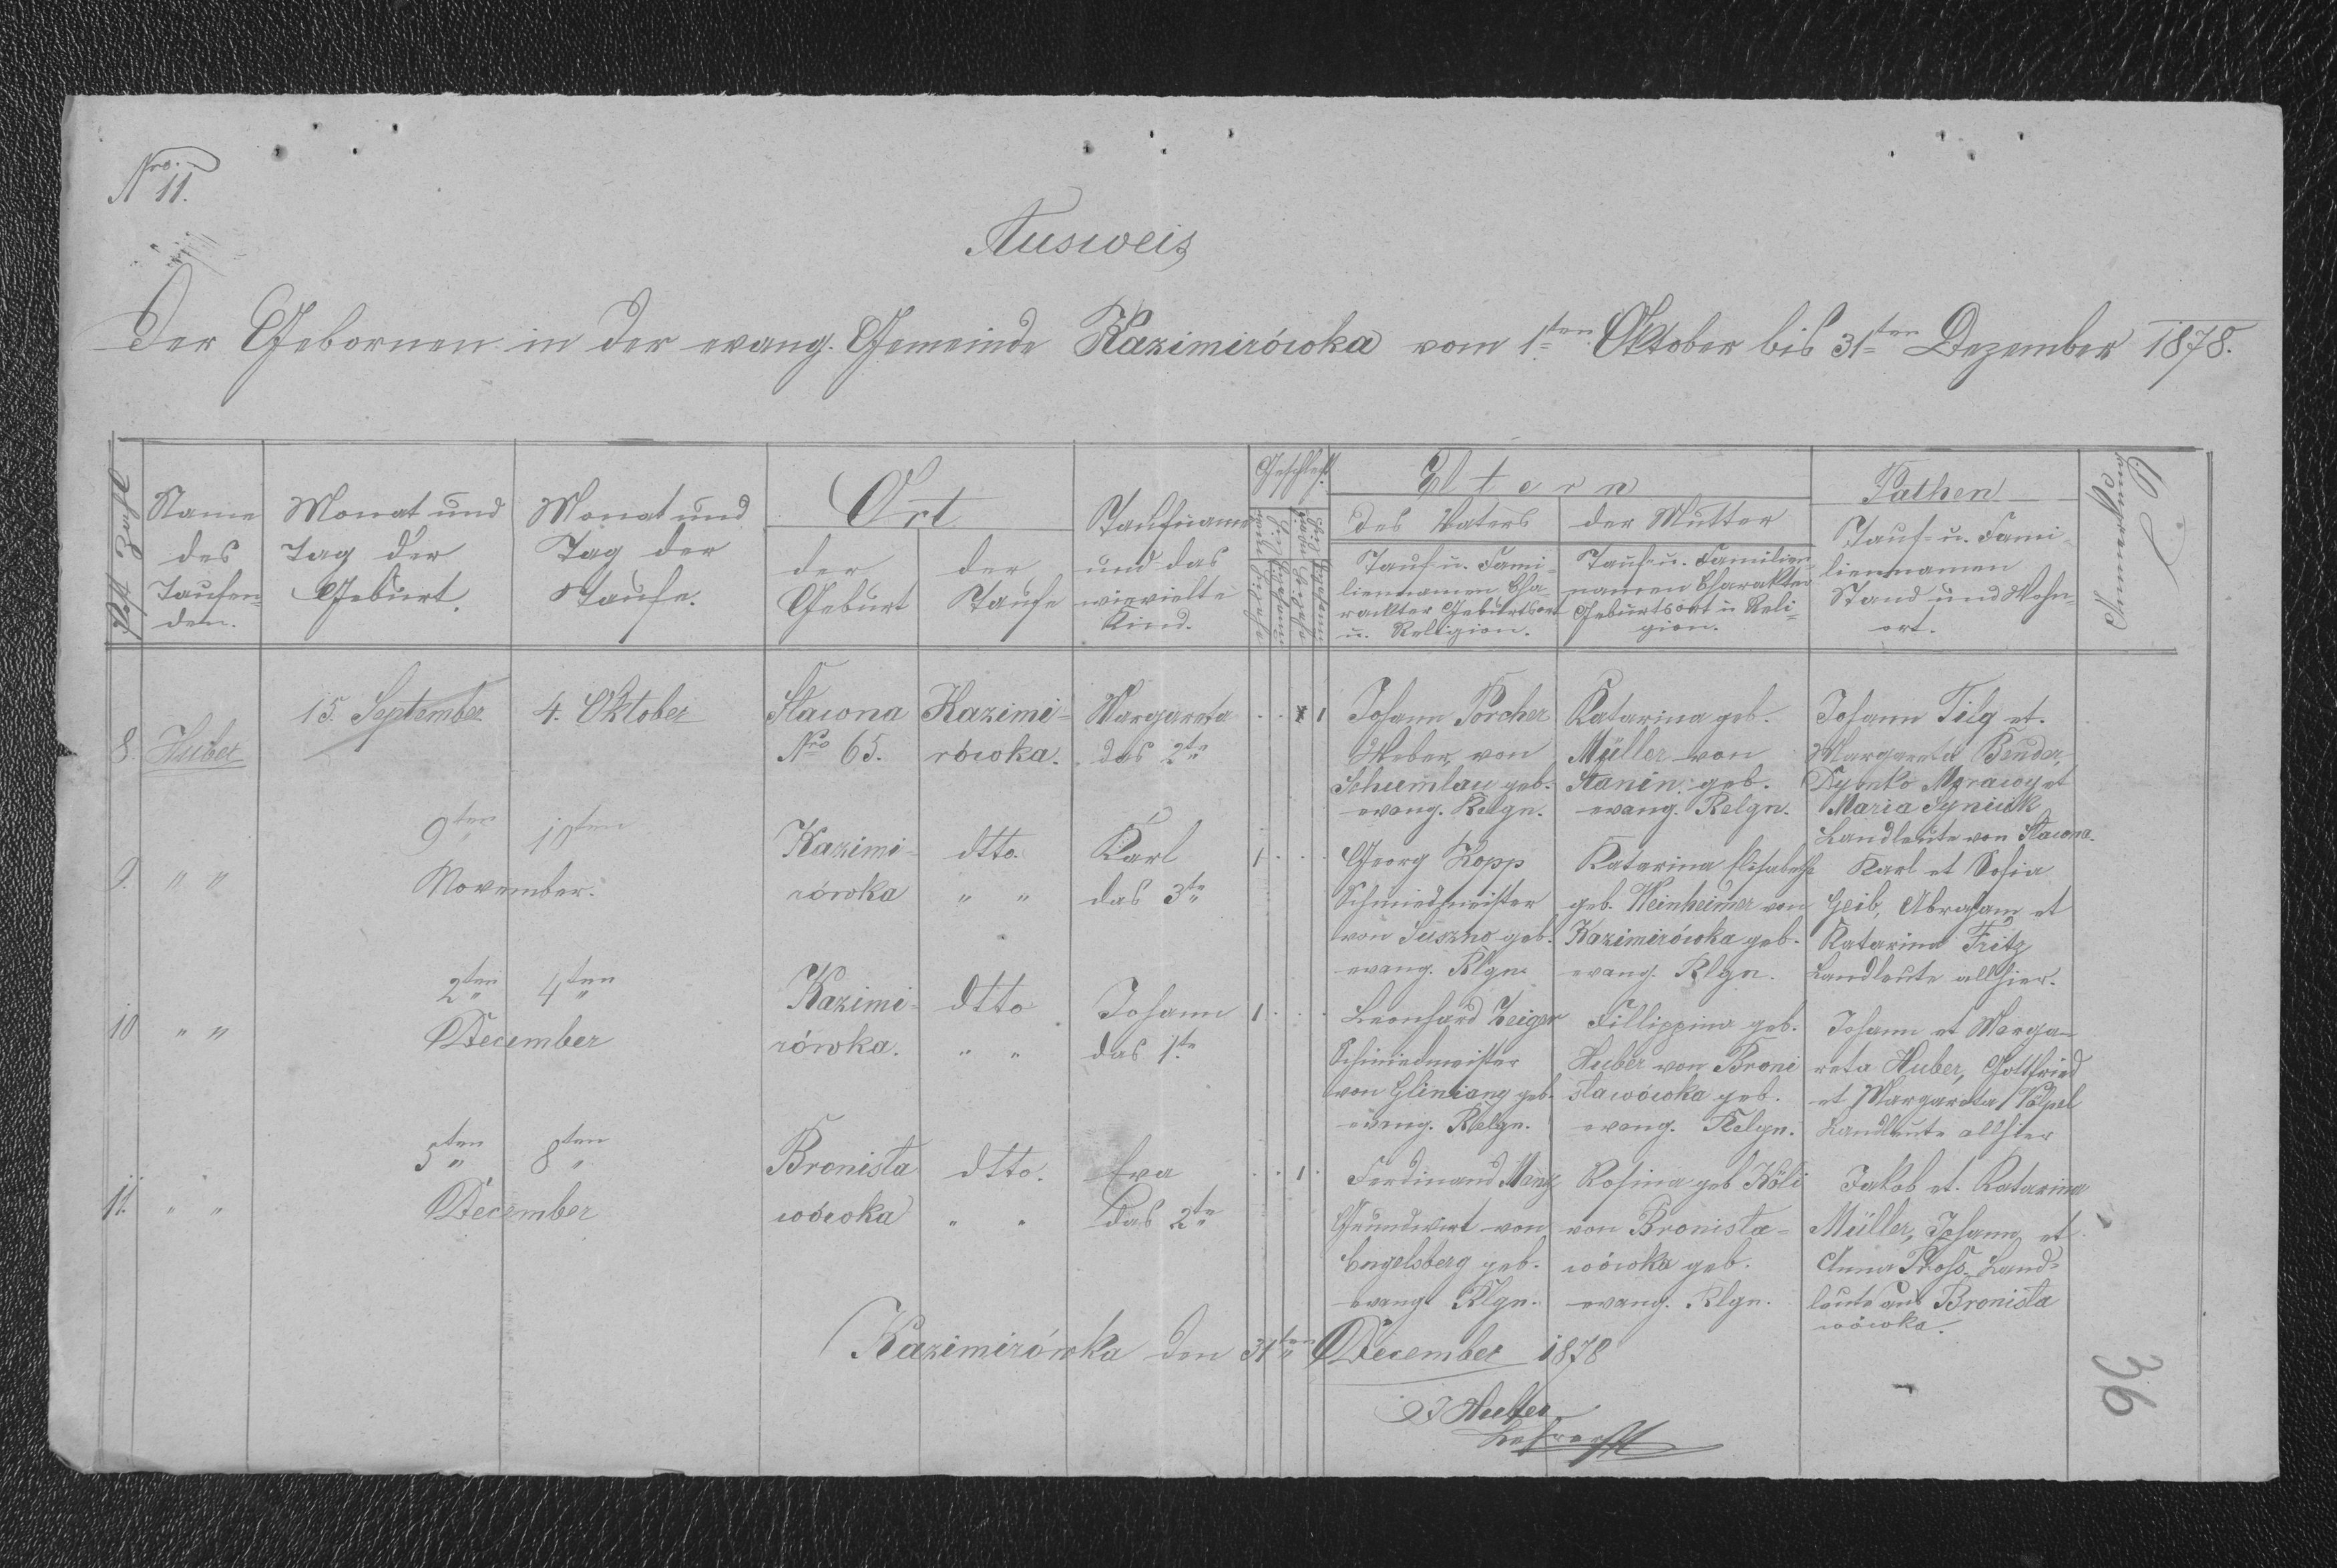 Nro. 11.
Ausweis
Der Gebornen in der evang. Gemeinde Kazimirówka vom 1ten Oktober bis 31ten Dezember 1878.
Name des Taufenden.
Monat und Tag der Geburt.
Monat und Tag der Taufe.
Ort
der Geburt
der Taufe
Taufname und das wievielte Kind.
Geschlecht.
Eltern
des Vaters
Tauf- u. Familiennamen Charackter Geburtsort u. Religion.
der Mutter
Tauf- u. Familiennamen Charakter Geburtsort u Religion.
Pathen
Tauf- u. Familiennamen Stand und Wohnort.
Anmerkung
8. Huber
15. September
4. Oktober
Slawna
Nro 65.
Kazimirówka.
Margareta
das 2te
1
Johann Porcher
Weber, von
Schumlau geb.
evang. Relgn.
Katarina geb.
Müller von
Stanin geb.
evang. Relgn.
Johann Tilg et.
Margareta Bender,
Dymko Mrawy et
Maria Syniuk
Landleute von Slawna.
9. " "
9ten 10ten
November.
Kazimirówka
dtto.
" "
Karl
das 3te
1
Georg Kopp
Schmiedmeister
von Suszno geb.
evang. Rlgn.
Katarina Elisabeth
geb. Weinheimer von
Kazimirówka geb.
evang. Rlgn.
Karl et Sofia
Geib, Abraham et
Katarina Fritz
Landleute allhier.
10 " "
2ten 4ten
December
Kazimirówka.
dtto
" "
Johann
das 1te
1
Leonhard Zeiger
Schmiedmeister
von Gliniany geb.
evang. Relgn.
Fillippina geb.
Huber von Broni
sławówka geb.
evang. Relgn.
Johann et Margareta Huber, Gottfried
et Margareta Völpel
Landleute allhier
11. " "
5ten 8ten
December
Bronisła
wówka
dtto.
" "
Eva
das 2te
1
Ferdinand Manz
Grundwirt von
Engelsberg geb.
evang. Rlgn.
Rosina geb Köli
von Bronisła-
wówka geb.
evang. Rlgn.
Jakob et. Katarina
Müller, Johann et
Anna Pross Land-
leute aus Bronisła
wówka.
Kazimirówka den 31ten December 1878
Lehrer
36